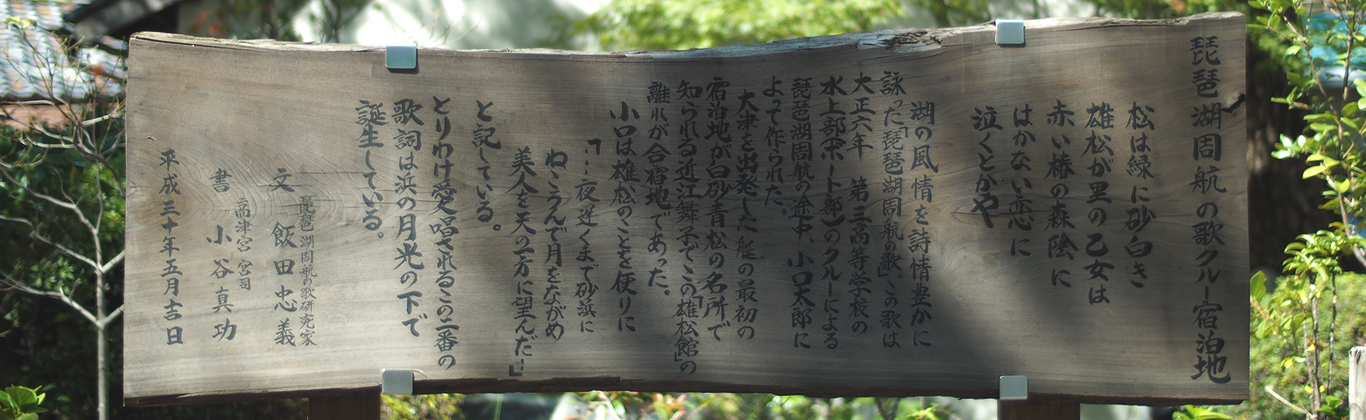 琵琶湖周航の歌クルー宿泊地
松は緑に砂白き
雄松が里の乙女は
赤い椿の森陰に
はかない恋に
泣くとかや
湖の風情を詩情豊かに
詠った「琵琶湖周航の歌」この歌は
大正六年　第三高等学校の
水上部(ボート部)のクルーによる
琵琶湖周航の途中、小口太郎に
よって作られた。
大津を出発した艇の最初の
宿泊地が白砂青松の名所で
知られる近江舞子でこの「雄松館」の
離れが合宿地であった。
小口は雄松のことを便りに
「…夜遅くまで砂浜に
ねころんで月をながめ
美人を天の一方に望んだ…」
と記している。
とりわけ愛唱されるこの二番の
歌詞は浜の月光の下で
誕生している。
琵琶湖周航の歌研究家
文　飯田忠義
高津宮宮司
書　小谷真功
平成三十年五月吉日